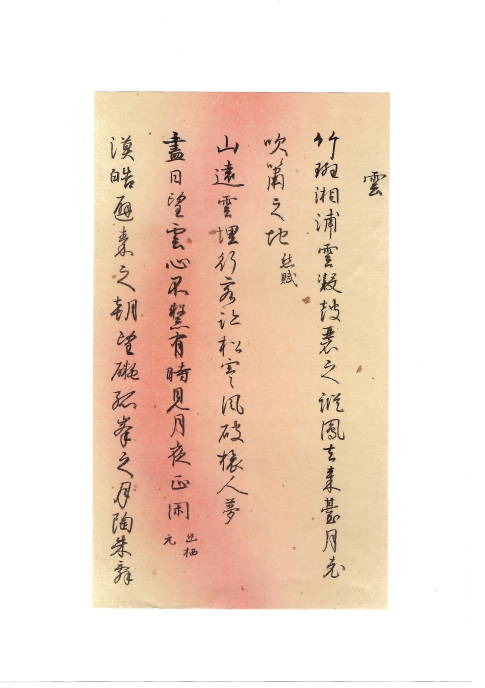 雲
竹斑湘浦雲凝鼓瑟之蹤鳳去秦臺月老
吹簫之地 愁賦
山遠雲埋行客跡松寒風破旅人夢
盡日望雲心不繫有時見月夜正閑 幽栖
元
漢皓避秦之朝望礙孤峯之月陶朱辭